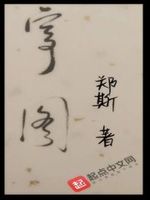 图
郑斯 著
起点中文网